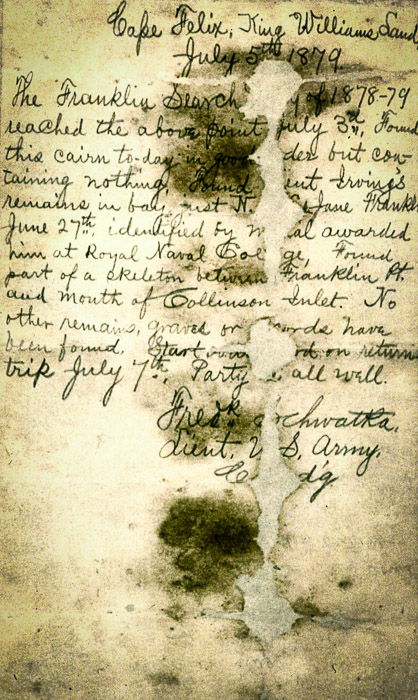 Cape Felix, King Williams Land
July 5th 1879
The Franklin Search y of 1878-79
reached the above point July 3rd, Found
this cairn to-day in good der but con-
taining nothing. Found ent Irving's
remains in bay just N. Jane Frankl
June 27th, identified by m al awarded
him at Royal Naval Col ge, Found
part of a skeleton between Franklin Pt.
and mouth of Collinson Inlet. No
other remains, graves or cords have
been found. Start on return
trip July 7th, Party all well.
Fredk chwatka,
Lieut. U S. Army,
C d'g